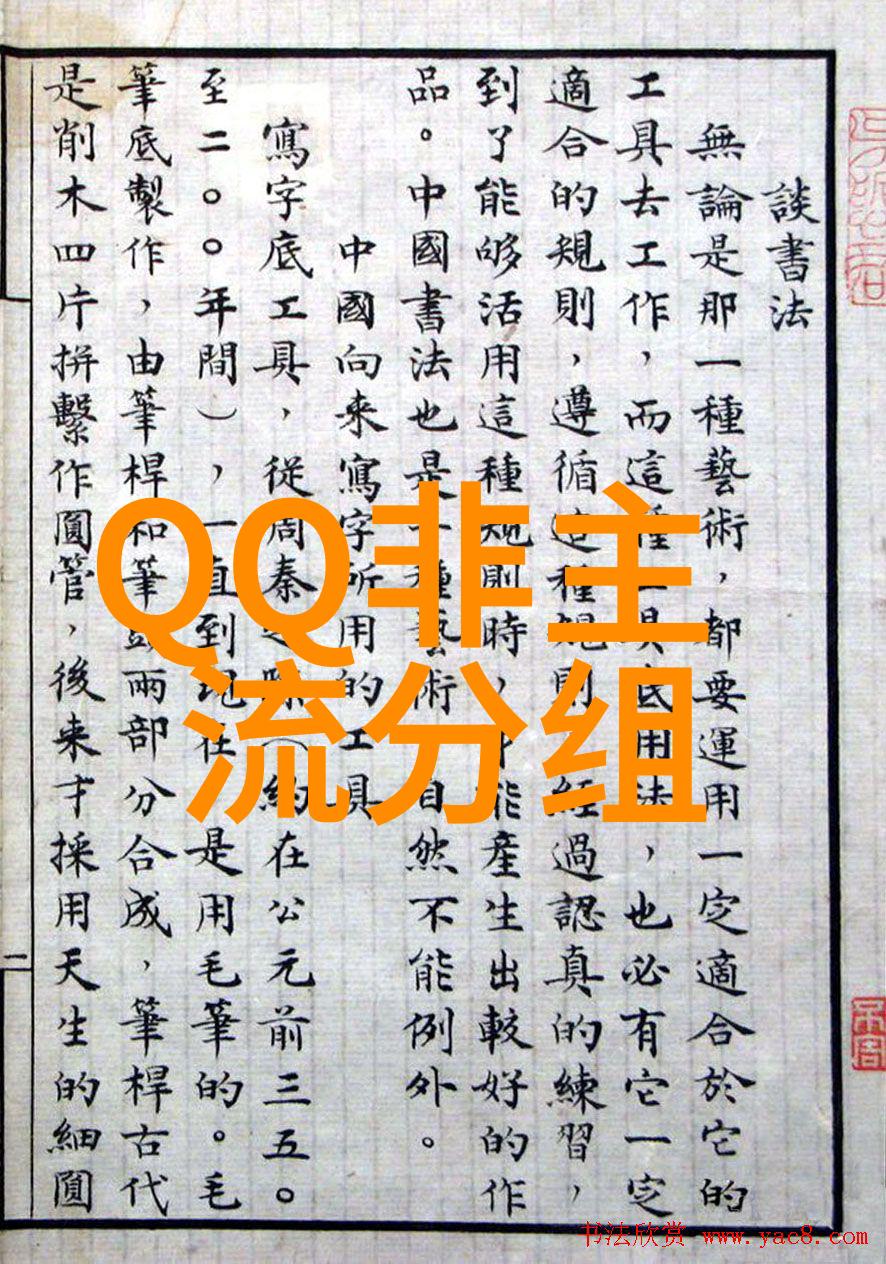 談書法
無論是那一種藝術，都要運用一定適合於它的
工具去工作，而這種工具底用法，也必有它一定
適合的規則，遵循這種規則，經過認真的練習，
到了能够活用這種規則時，才能產生出較好的作
品。中國書法也是一種藝術，自然不能例外。
中國向来寫字所用的工具
寫字底工具，從周秦之際（約在公元前三五〇
至二〇〇年間），一直到現在，是用毛筆的。毛
筆底製作，由筆桿和筆頭兩部分合成，筆桿古代
是削木四片拼繫作圓管，後来才採用天生的細圓
二
QQ非主
流分组
书法欣赏 www.yac8.com